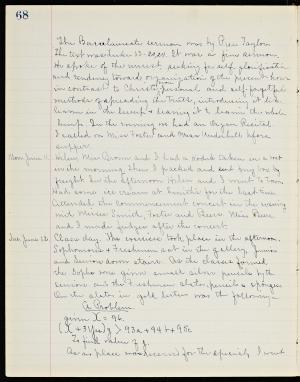 68
The Baccalaureate sermon was by Pres Taylor.
The text was Luke 13-20,21. It was a fine sermon.
He spoke of the unrest, seeking for self glorification
and tendency toward organization of the present hour
in contrast to Christ's personal and self forgetful
methods of spreading the truth, introducing it like
leaven in the leaving it to leaven the whole
lump. In the evening we had an Organ Recital
I called on Miss Foster and Miss Underhill before
supper.
Mon. June 11. Helen, Miss Brown and I had a
in the morning. Then I packed and sent my box by
freight. In the afternoon Helen and I went to Town
Had some ice cream at Smith's for the last time
Attended the Commencement concert in the evening
with Misses Smith, Foster and Miss Reese
and I made fudges after the concert.
Tue. June 12. Class day. The exercises took place in the afternoon.
Sophomores & Freshmen sat in the gallery, Juniors
and Seniors down stairs. As the classes formed
the Sophs were given small silver pencils by the
Seniors and the Freshmen slates, pencils & sponges
On the slates in gold letters was the following:-
A Problem.
given X = 96.
(X + 3 yrs) g > 93a + 94b + 95c
To find value of g.
As a place was reserved for the specials, I went